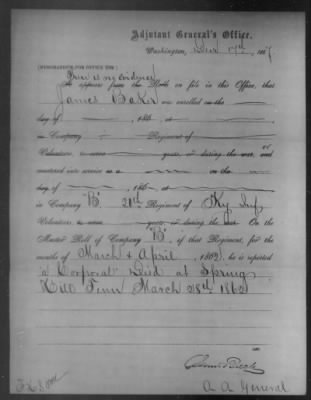 Adjutant General's Office,
Washington, 17th, 1867
[MEMORANDUM FOR OFFICE USE.]
There is no evidence
It appears from the Rolls on file in this Office, that
James Baker was enrolled on the
day of , 186 , at
in Company Regiment of
Volunteers, to serve years, or during the war, and
mustered into service as a on the
day of , 186 , at
in Company "B", 21st Regiment of Ky Inf
Volunteers, to serve years, or during the war. On the
Muster Roll of Company "B", of that Regiment, for the
months of March & April, 1862, he is reported
"a Corporal Died at Spring
Hill Tenn March 28th 1862
A A General